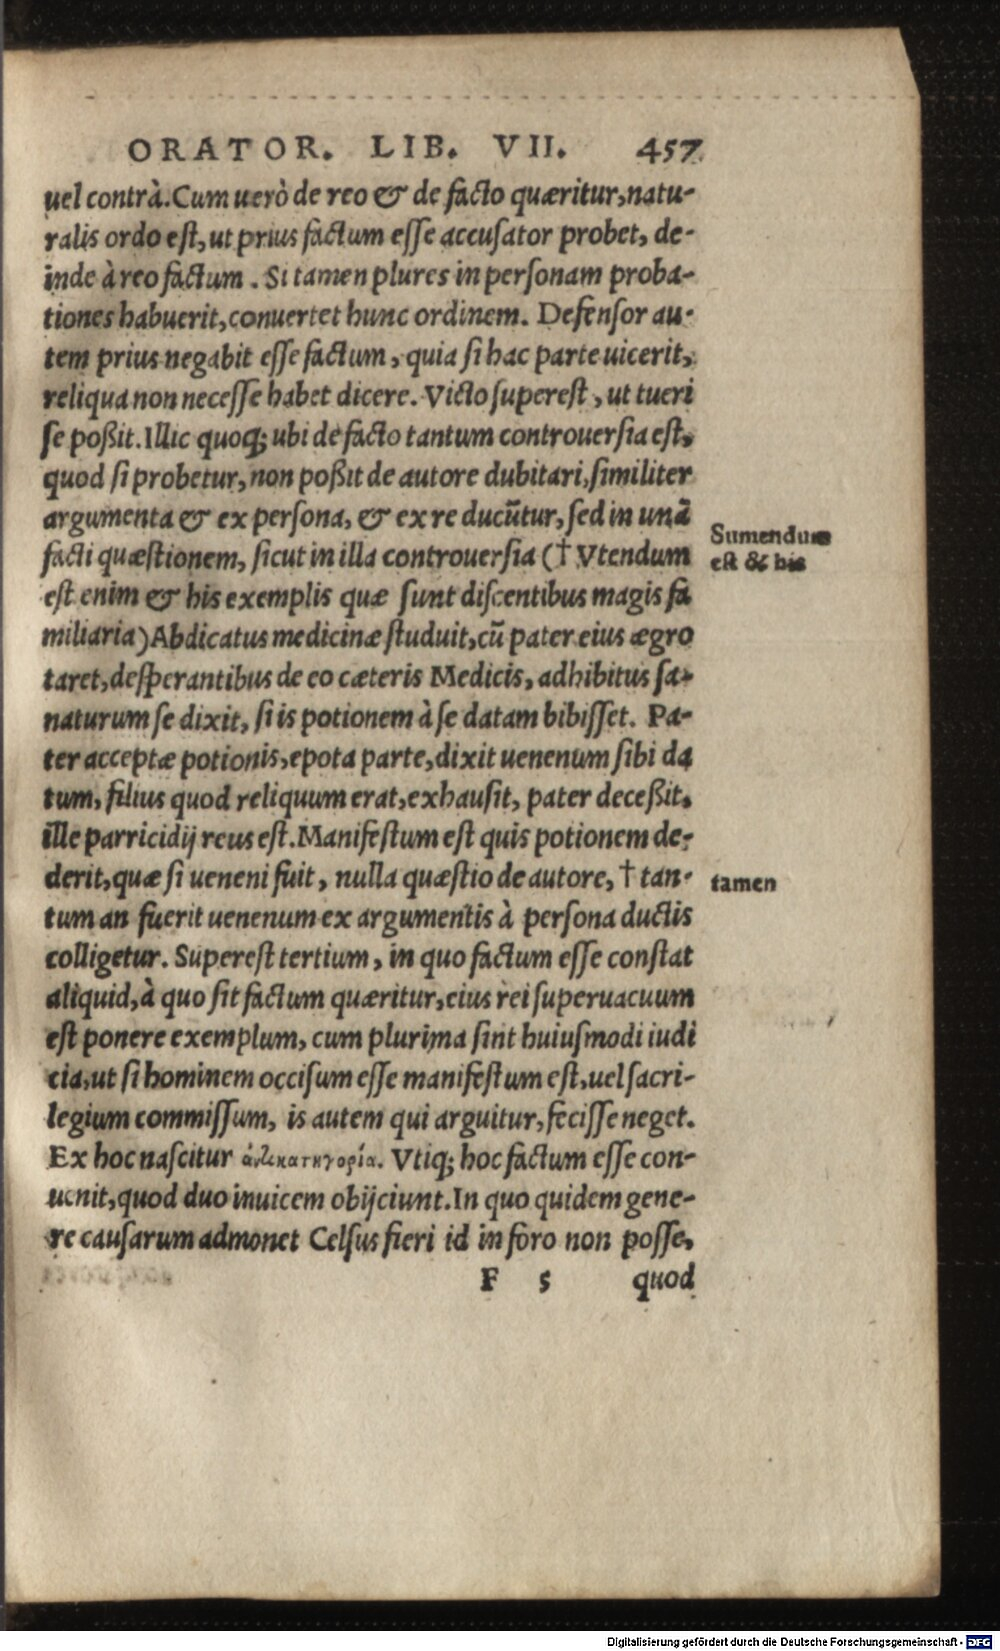 ORATOR. LIB. VII. 457
uel contrà. Cum uerò de reo & de facto quæritur, natu-
ralis ordo est, ut prius factum esse accusator probet, de-
inde à reo factum. Si tamen plures in personam proba-
tiones habuerit, conuertet hunc ordinem. Defensor au-
tem prius negabit esse factum, quia si hac parte uicerit,
reliqua non necesse habet dicere. Victo superest, ut tueri
se poßit. Illic quoq; ubi de facto tantum controuersia est,
quod si probetur, non poßit de autore dubitari, similiter
argumenta & ex persona, & ex re ducũtur, sed in unã
facti quæstionem, sicut in illa controuersia († Vtendum
Sumendum
est & his
est enim & his exemplis quæ sunt discentibus magis fa
miliaria) Abdicatus medicinæ studuit, cũ pater eius ægro
taret, desperantibus de eo cæteris Medicis, adhibitus sa-
naturum se dixit, si is potionem à se datam bibisset. Pa-
ter acceptæ potionis, epota parte, dixit uenenum sibi da
tum, filius quod reliquum erat, exhausit, pater deceßit,
ille parricidij reus est. Manifestum est quis potionem de-
derit, quæ si ueneni fuit, nulla quæstio de autore, † tan-
tamen
tum an fuerit uenenum ex argumentis à persona ductis
colligetur. Superest tertium, in quo factum esse constat
aliquid, à quo sit factum quæritur, eius rei superuacuum
est ponere exemplum, cum plurima sint huiusmodi iudi
cia, ut si hominem occisum esse manifestum est, uel sacri-
legium commissum, is autem qui arguitur, fecisse neget.
Ex hoc nascitur ἀντικατηγορία. Vtiq; hoc factum esse con-
uenit, quod duo inuicem obijciunt. In quo quidem gene-
re causarum admonet Celsus fieri id in foro non posse,
F 5 quod
Digitalisierung gefördert durch die Deutsche Forschungsgemeinschaft - DFG